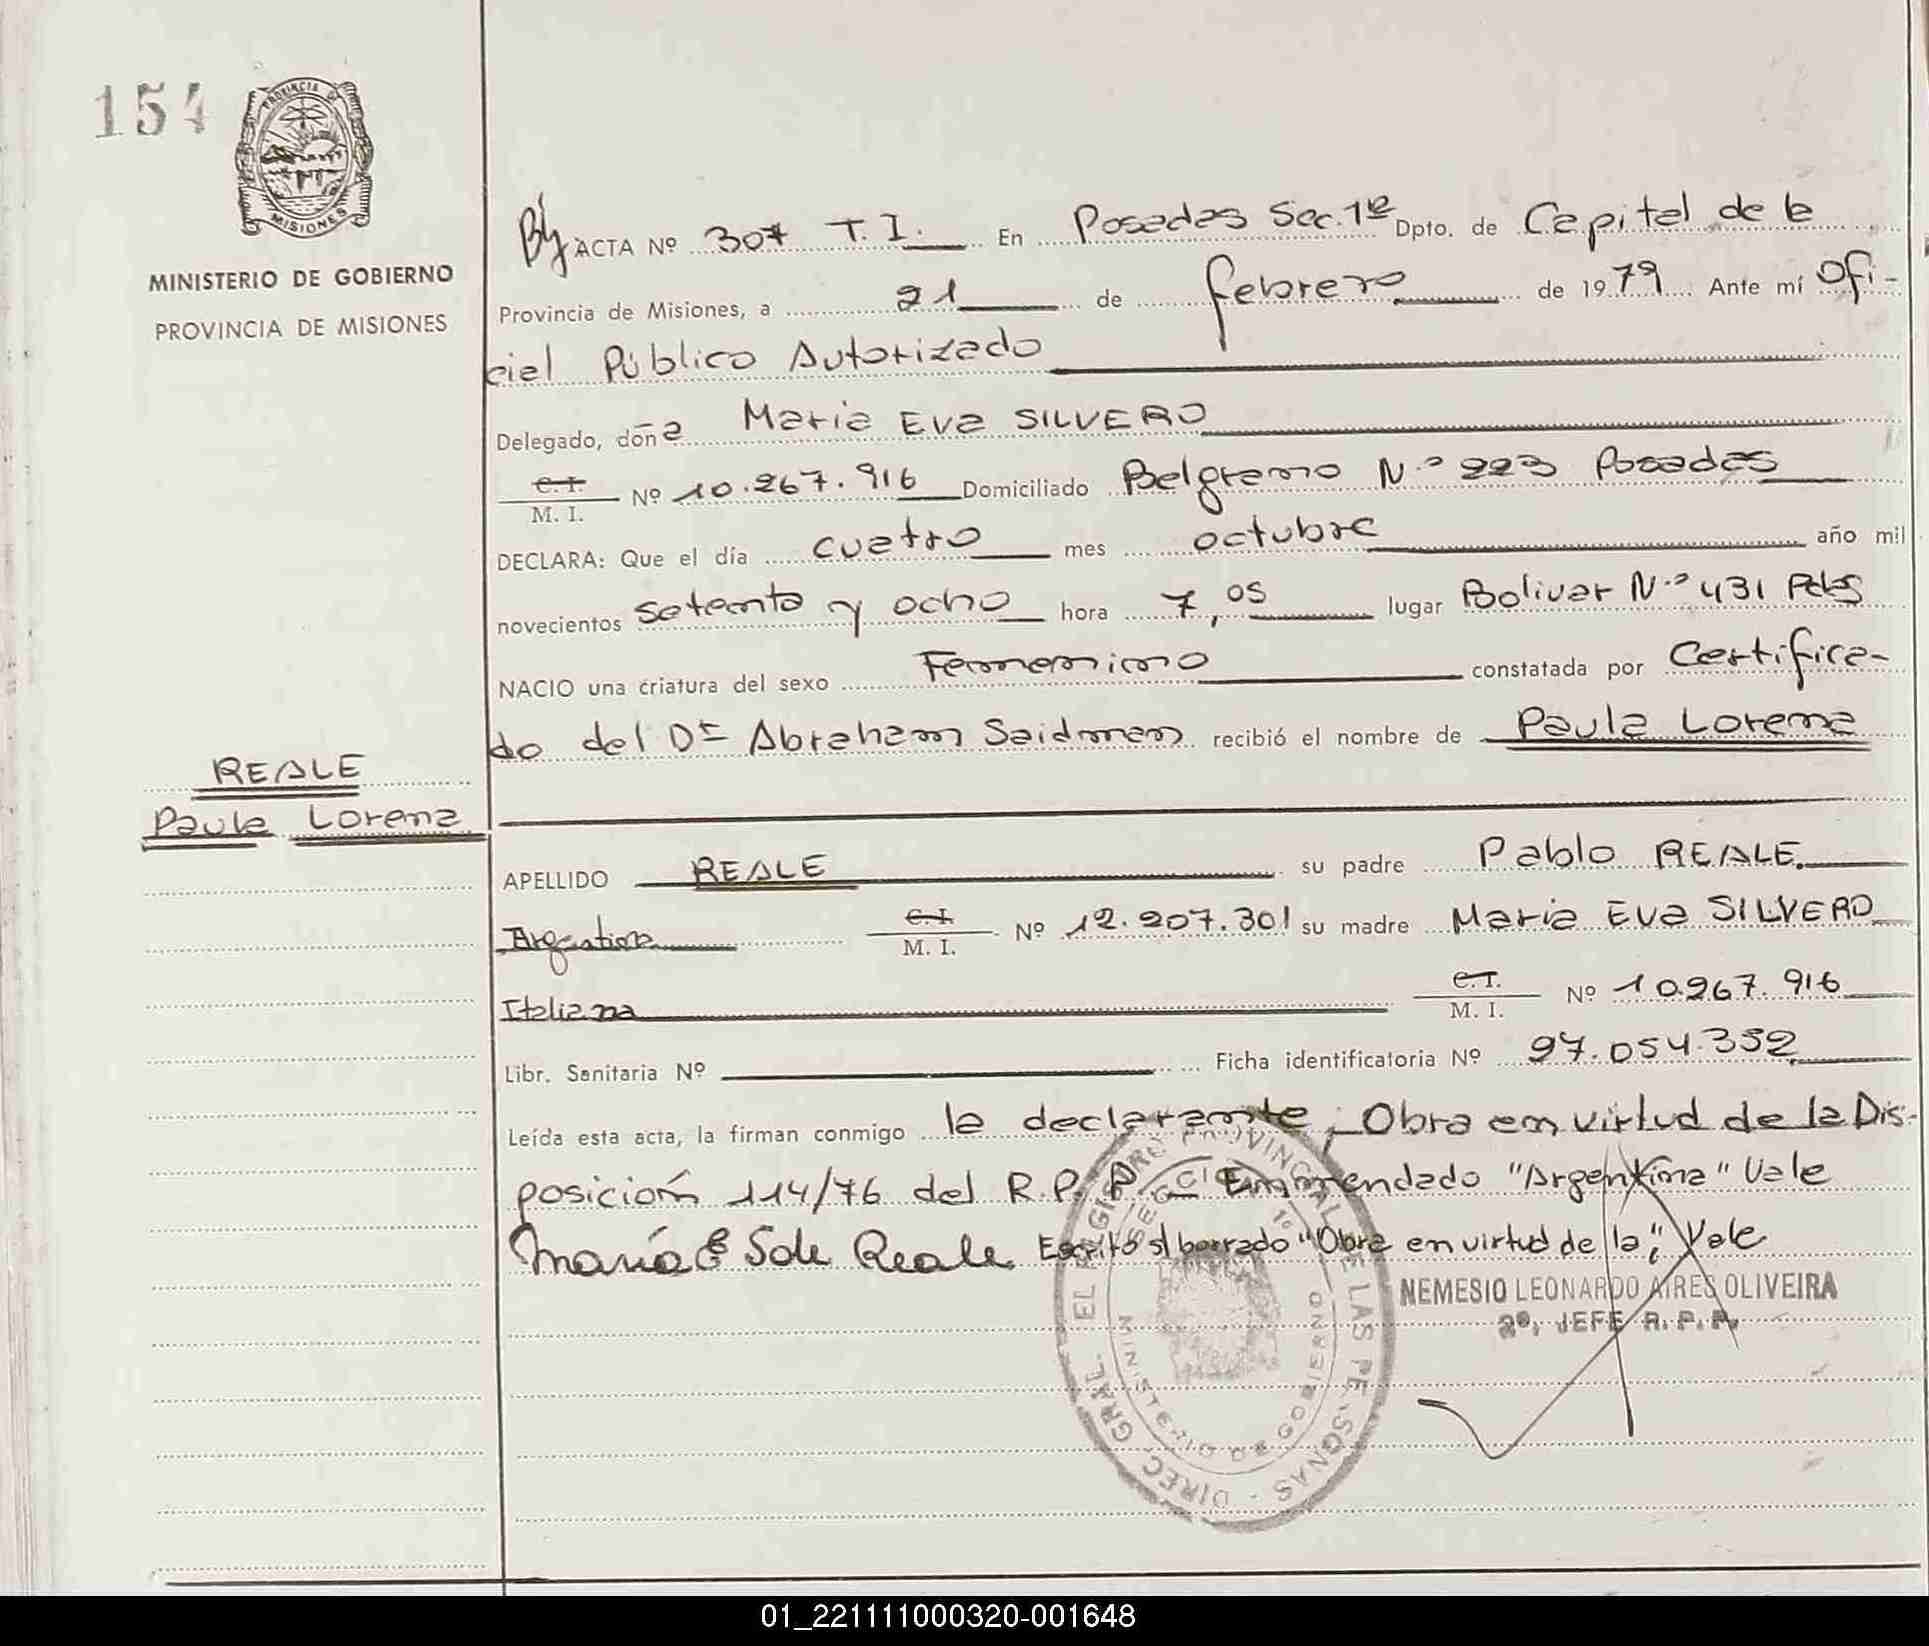 154
PROVINCIA DE
MISIONES
MINISTERIO DE GOBIERNO
PROVINCIA DE MISIONES
ACTA Nº 307 T. I. En Posadas Sec. 1ª Dpto. de Capital de la
Provincia de Misiones, a 21 de febrero de 1979 Ante mí Ofi-
cial Público Autorizado
Delegado, doña Maria Eva SILVERO
C.I. / M. I. Nº 10.267.916 Domiciliado Belgrano N.º 223 Posadas
DECLARA: Que el día cuatro mes octubre año mil
novecientos setenta y ocho hora 7,05 lugar Bolivar N.º 431 Pdas
NACIO una criatura del sexo Femenino constatada por Certifica-
do del Dr Abraham Saidman recibió el nombre de Paula Lorena
REALE
Paula Lorena
APELLIDO REALE su padre Pablo REALE.
Argentina C.I. / M. I. Nº 12.207.301 su madre Maria Eva SILVERO
Italiana C.I. / M. I. Nº 10.267.916
Libr. Sanitaria Nº Ficha identificatoria Nº 27.054.352
Leída esta acta, la firman conmigo la declarante; Obra en virtud de la Dis-
posición 114/76 del R.P.P. Enmendado "Argentina" Vale
María E Sole Reale Escrito s/ borrado "Obra en virtud de la"; Vale
NEMESIO LEONARDO AIRES OLIVEIRA
2º. JEFE R. P. P.
DIREC. GRAL. EL REGISTRO PROVINCIAL DE LAS PERSONAS
MINISTERIO DE GOBIERNO
01_221111000320-001648